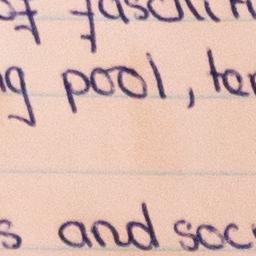 of fascin
ng pool, ten
s and soc